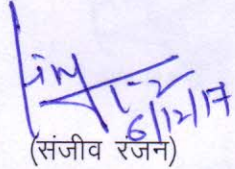 6/12/17
(संजीव रंजन)